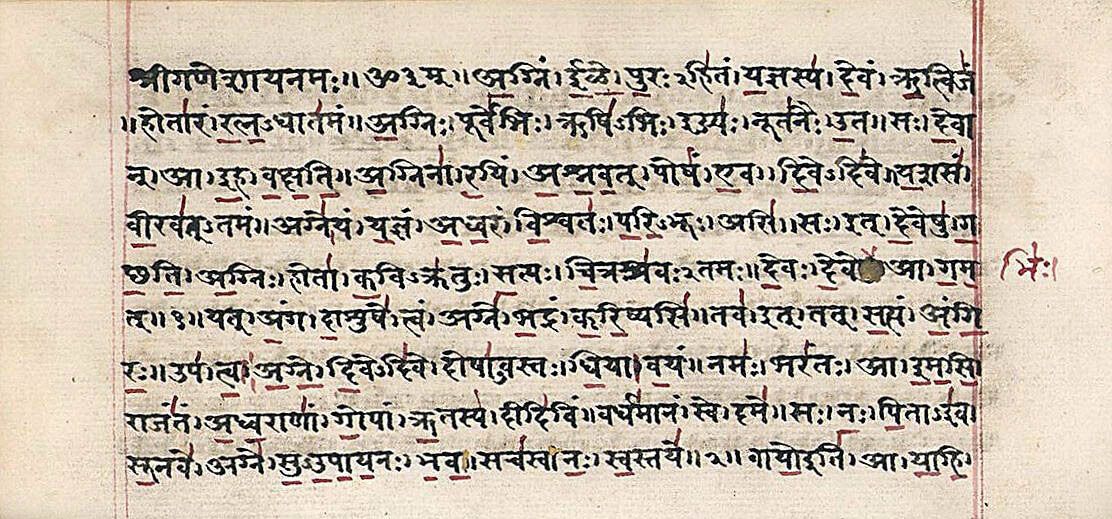 श्रीगणेशायनमः॥ ॐ३म्॥ अ॒ग्निं। ई॒ळे॒। पु॒रःऽहि॑तं। य॒ज्ञस्य॑। दे॒वं। ऋ॒त्विजं॑
॥होता॑रं। र॒त्न॒ऽधात॑मं॥ अ॒ग्निः। पूर्वे॑भिः। ऋषि॑ऽभिः। ईड्यः॑। नूत॑नैः। उ॒त॥ सः। दे॒वा
न्। आ। इ॒ह। व॒क्ष॒ति॒॥ अ॒ग्निना॑। र॒यिं। अ॒श्न॒व॒त्। पोषं॑। ए॒व। दि॒वेऽदि॑वे॥ य॒शसं॑
वी॒रव॑त्ऽतमं॥ अग्ने॑। यं। य॒ज्ञं। अ॒ध्व॒रं। वि॒श्वतः॑। प॒रि॒ऽभूः। असि॑॥ सः। इत्। दे॒वेषु॑। ग॒
च्छ॒ति॒। अ॒ग्निः। होता॑। क॒विऽक्र॑तुः। स॒त्यः। चि॒त्रश्र॑वःऽतमः॥ दे॒वः। दे॒वे आ। ग॒म॒
भिः॑।
त्॥१॥ यत्। अं॒ग। दा॒शुषे॑। त्वं। अग्ने॑। भ॒द्रं। क॒रि॒ष्यसि॑॥ तव॑। इत्। तत्। स॒त्यं। अं॒गि॒
रः॒॥ उप॑। त्वा॒। अ॒ग्ने॒। दि॒वेऽदि॑वे। दोषा॑ऽवस्तः। धि॒या। व॒यं॥ नमः॑। भरं॑तः। आ। इ॒म॒सि॒
राजं॑तं। अ॒ध्व॒राणां॑। गो॒पां। ऋ॒तस्य॑। दीदि॑विं॥ वर्ध॑मानं। स्वे। दमे॑॥ सः। नः॒। पि॒ताऽइ॑व।
सू॒नवे॑। अग्ने॑। सु॒ऽउ॒पा॒य॒नः। भ॒व॒। सच॑स्व। नः॒। स्व॒स्तये॑॥२॥ वायो॒इति॑। आ। या॒हि॒।